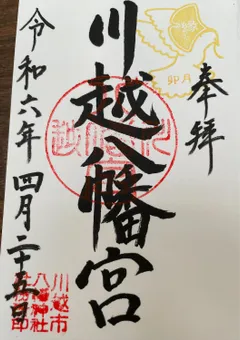 奉拝
卯月
川越八幡宮
令和六年四月二十五日
川越市
八幡神社